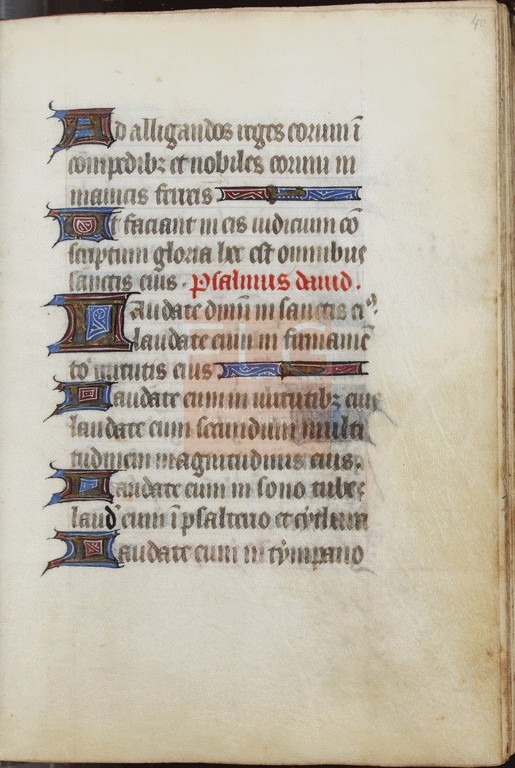 40
Ad alligandos reges eorum ī
compedibz et nobiles eorum in
manicis ferreis
Ut faciant in eis iudicium cō
scriptum gloria hec est omnibus
sanctis eius. Psalmus dauid.
Laudate dn̄m in sanctis ei⁹.
laudate eum in firmamē
to uirtutis eius
Laudate eum in uirtutibz eius
laudate eum secundum multi
tudinem magnitudinis eius.
Laudate eum in sono tube
laud' eum ī psalterio et cythara
Laudate eum in tympano